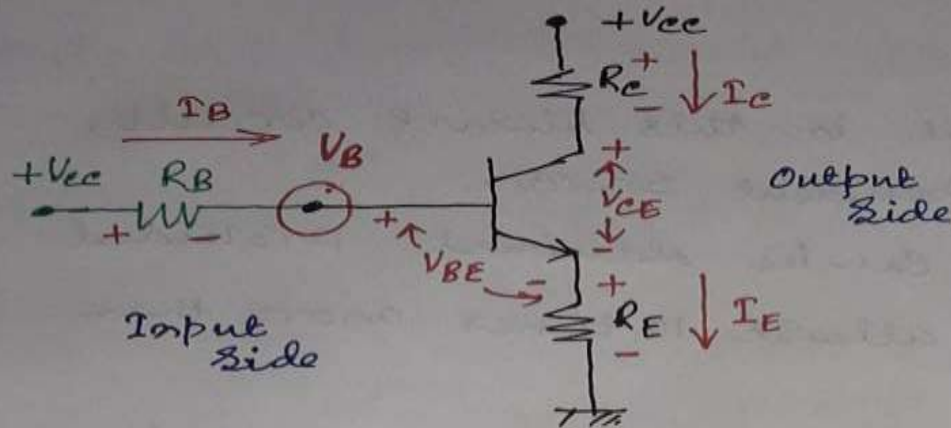 +Vcc
RC
+
-
IC
IB
VB
+Vcc
RB
+
-
+
VCE
-
Output
Side
+
VBE
-
+
RE
-
IE
Input
Side